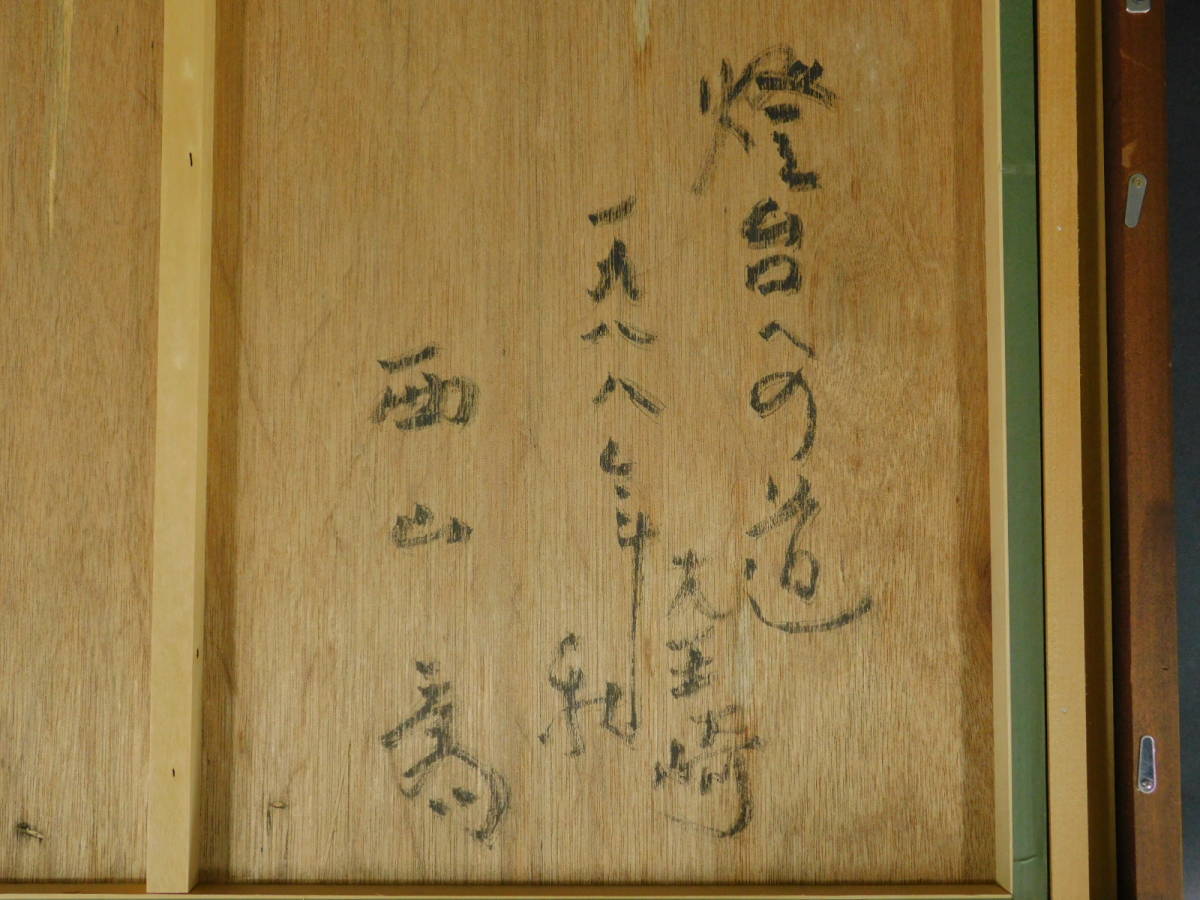 燈台への道
大王崎
一九八八年 秋
西山